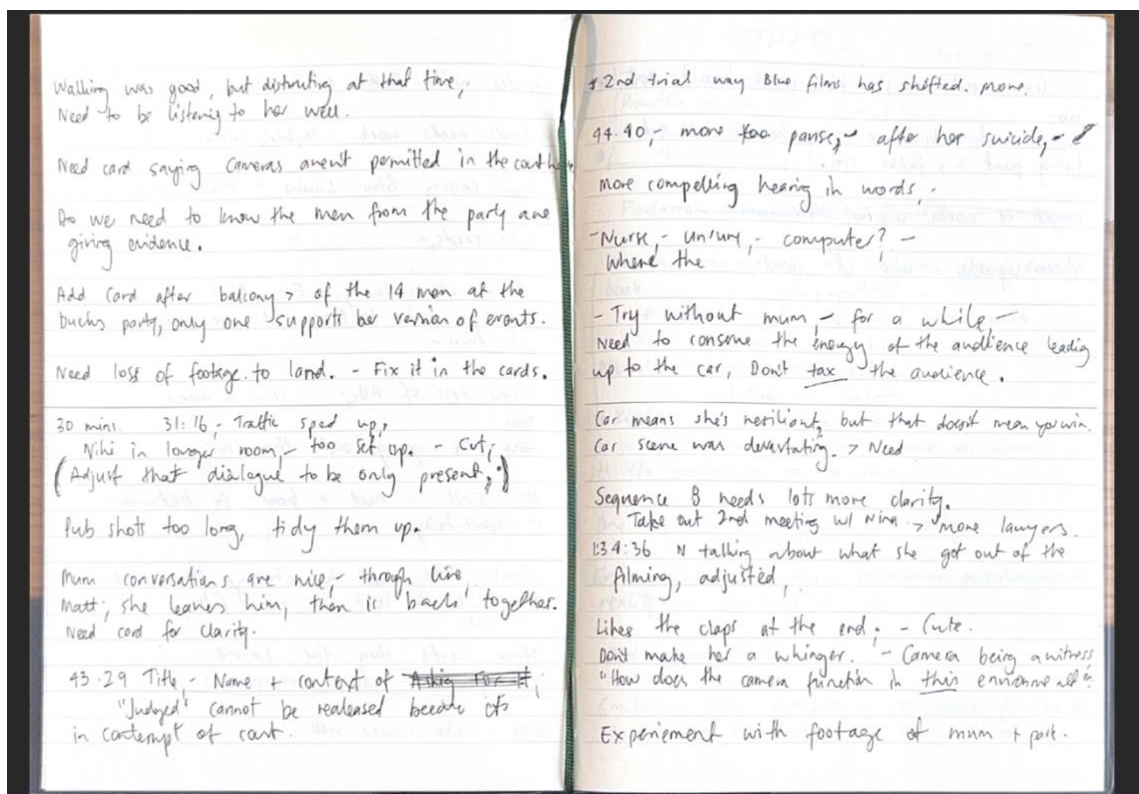 Walking was good, but distracting at that time,
Need to be listening to her well.
Need card saying cameras aren't permitted in the court
Do we need to know the men from the party are
giving evidence.
Add card after balcony > of the 14 men at the
bucks party, only one supports her version of events.
Need loss of footage to land. - Fix it in the cards.
30 mins. 31:16, - Traffic sped up,
in longer room, - too set up. - Cut,
(Adjust that dialogue to be only present,)
Pub shots too long, tidy them up.
Mum conversations are nice, - through line,
Matt, she leaves him, then is back together.
Need card for clarity.
43.29 Title, - Name + context of Asking For It,
"Judged" cannot be realeased becuse its
in contempt of court.
2nd trial way Blue films has shifted. more.
44.40, - more too pause, - after her suicide, -
more compelling hearing in words.
- Nurse, - unsure, - computer? -
Where the
- Try without mum, - for a while, -
Need to conserve the energy of the audience leading
up to the car, Don't tax the audience.
Car means she's resilient, but that doesn't mean you win.
Car scene was devastating. > Need
Sequence 8 needs lots more clarity.
Take out 2nd meeting w/ Nina. > more lawyers.
1:34:36 N talking about what she got out of the
filming, adjusted,
Likes the claps at the end, - Cute.
Don't make her a whinger. - Camera being a witness
"How does the camera function in this
Experiement with footage of mum +